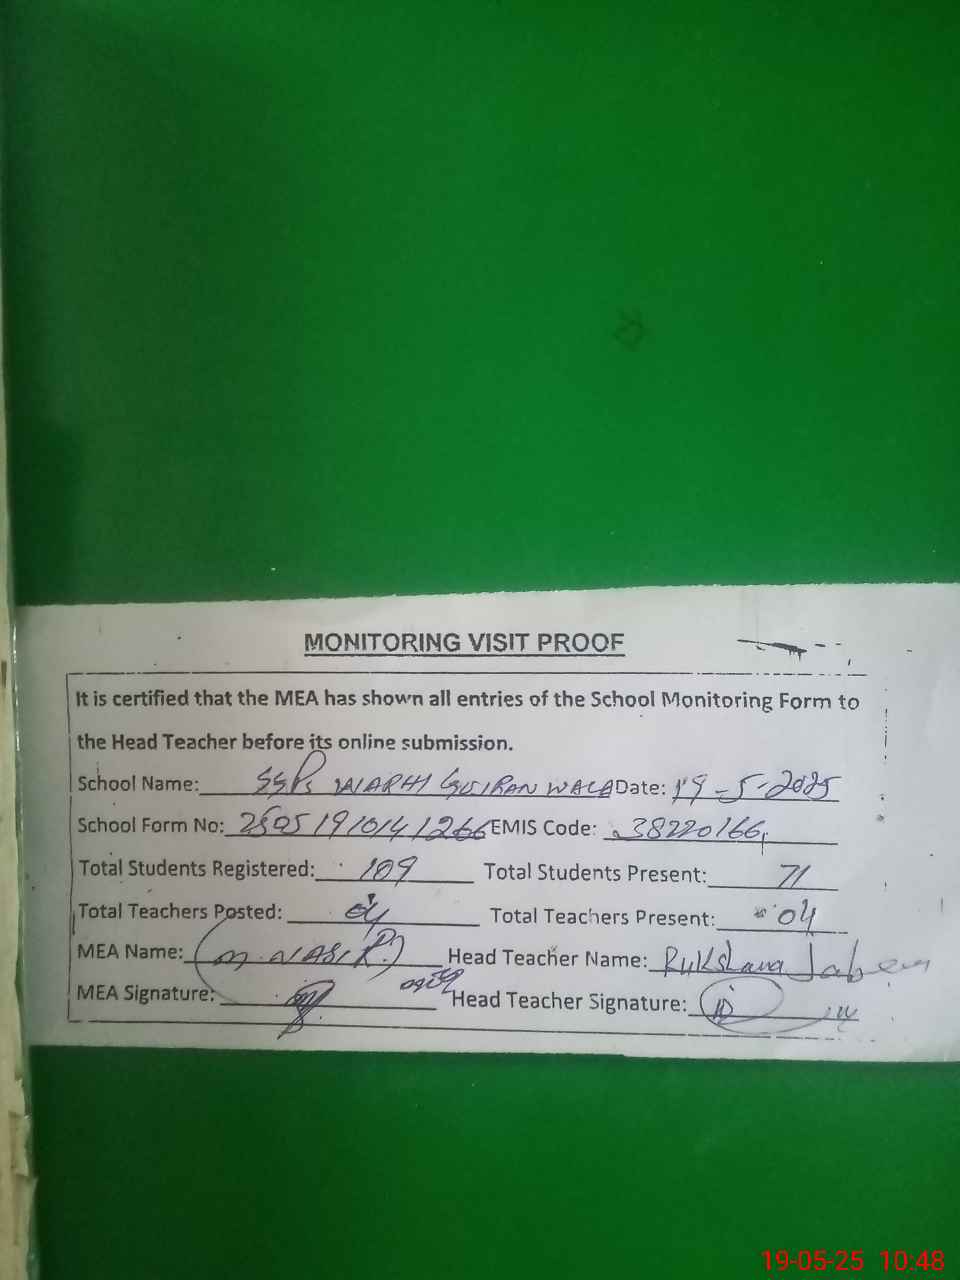 MONITORING VISIT PROOF
It is certified that the MEA has shown all entries of the School Monitoring Form to
the Head Teacher before its online submission.
School Name: WARHI GUJRANWALA Date: 19-5-2025
School Form No: 25051910141266 EMIS Code: 38220166
Total Students Registered: 109 Total Students Present: 71
Total Teachers Posted: 04 Total Teachers Present: 04
MEA Name: M. NASIR Head Teacher Name: Rukshana Jabeen
MEA Signature: Head Teacher Signature:
19-05-25 10:48